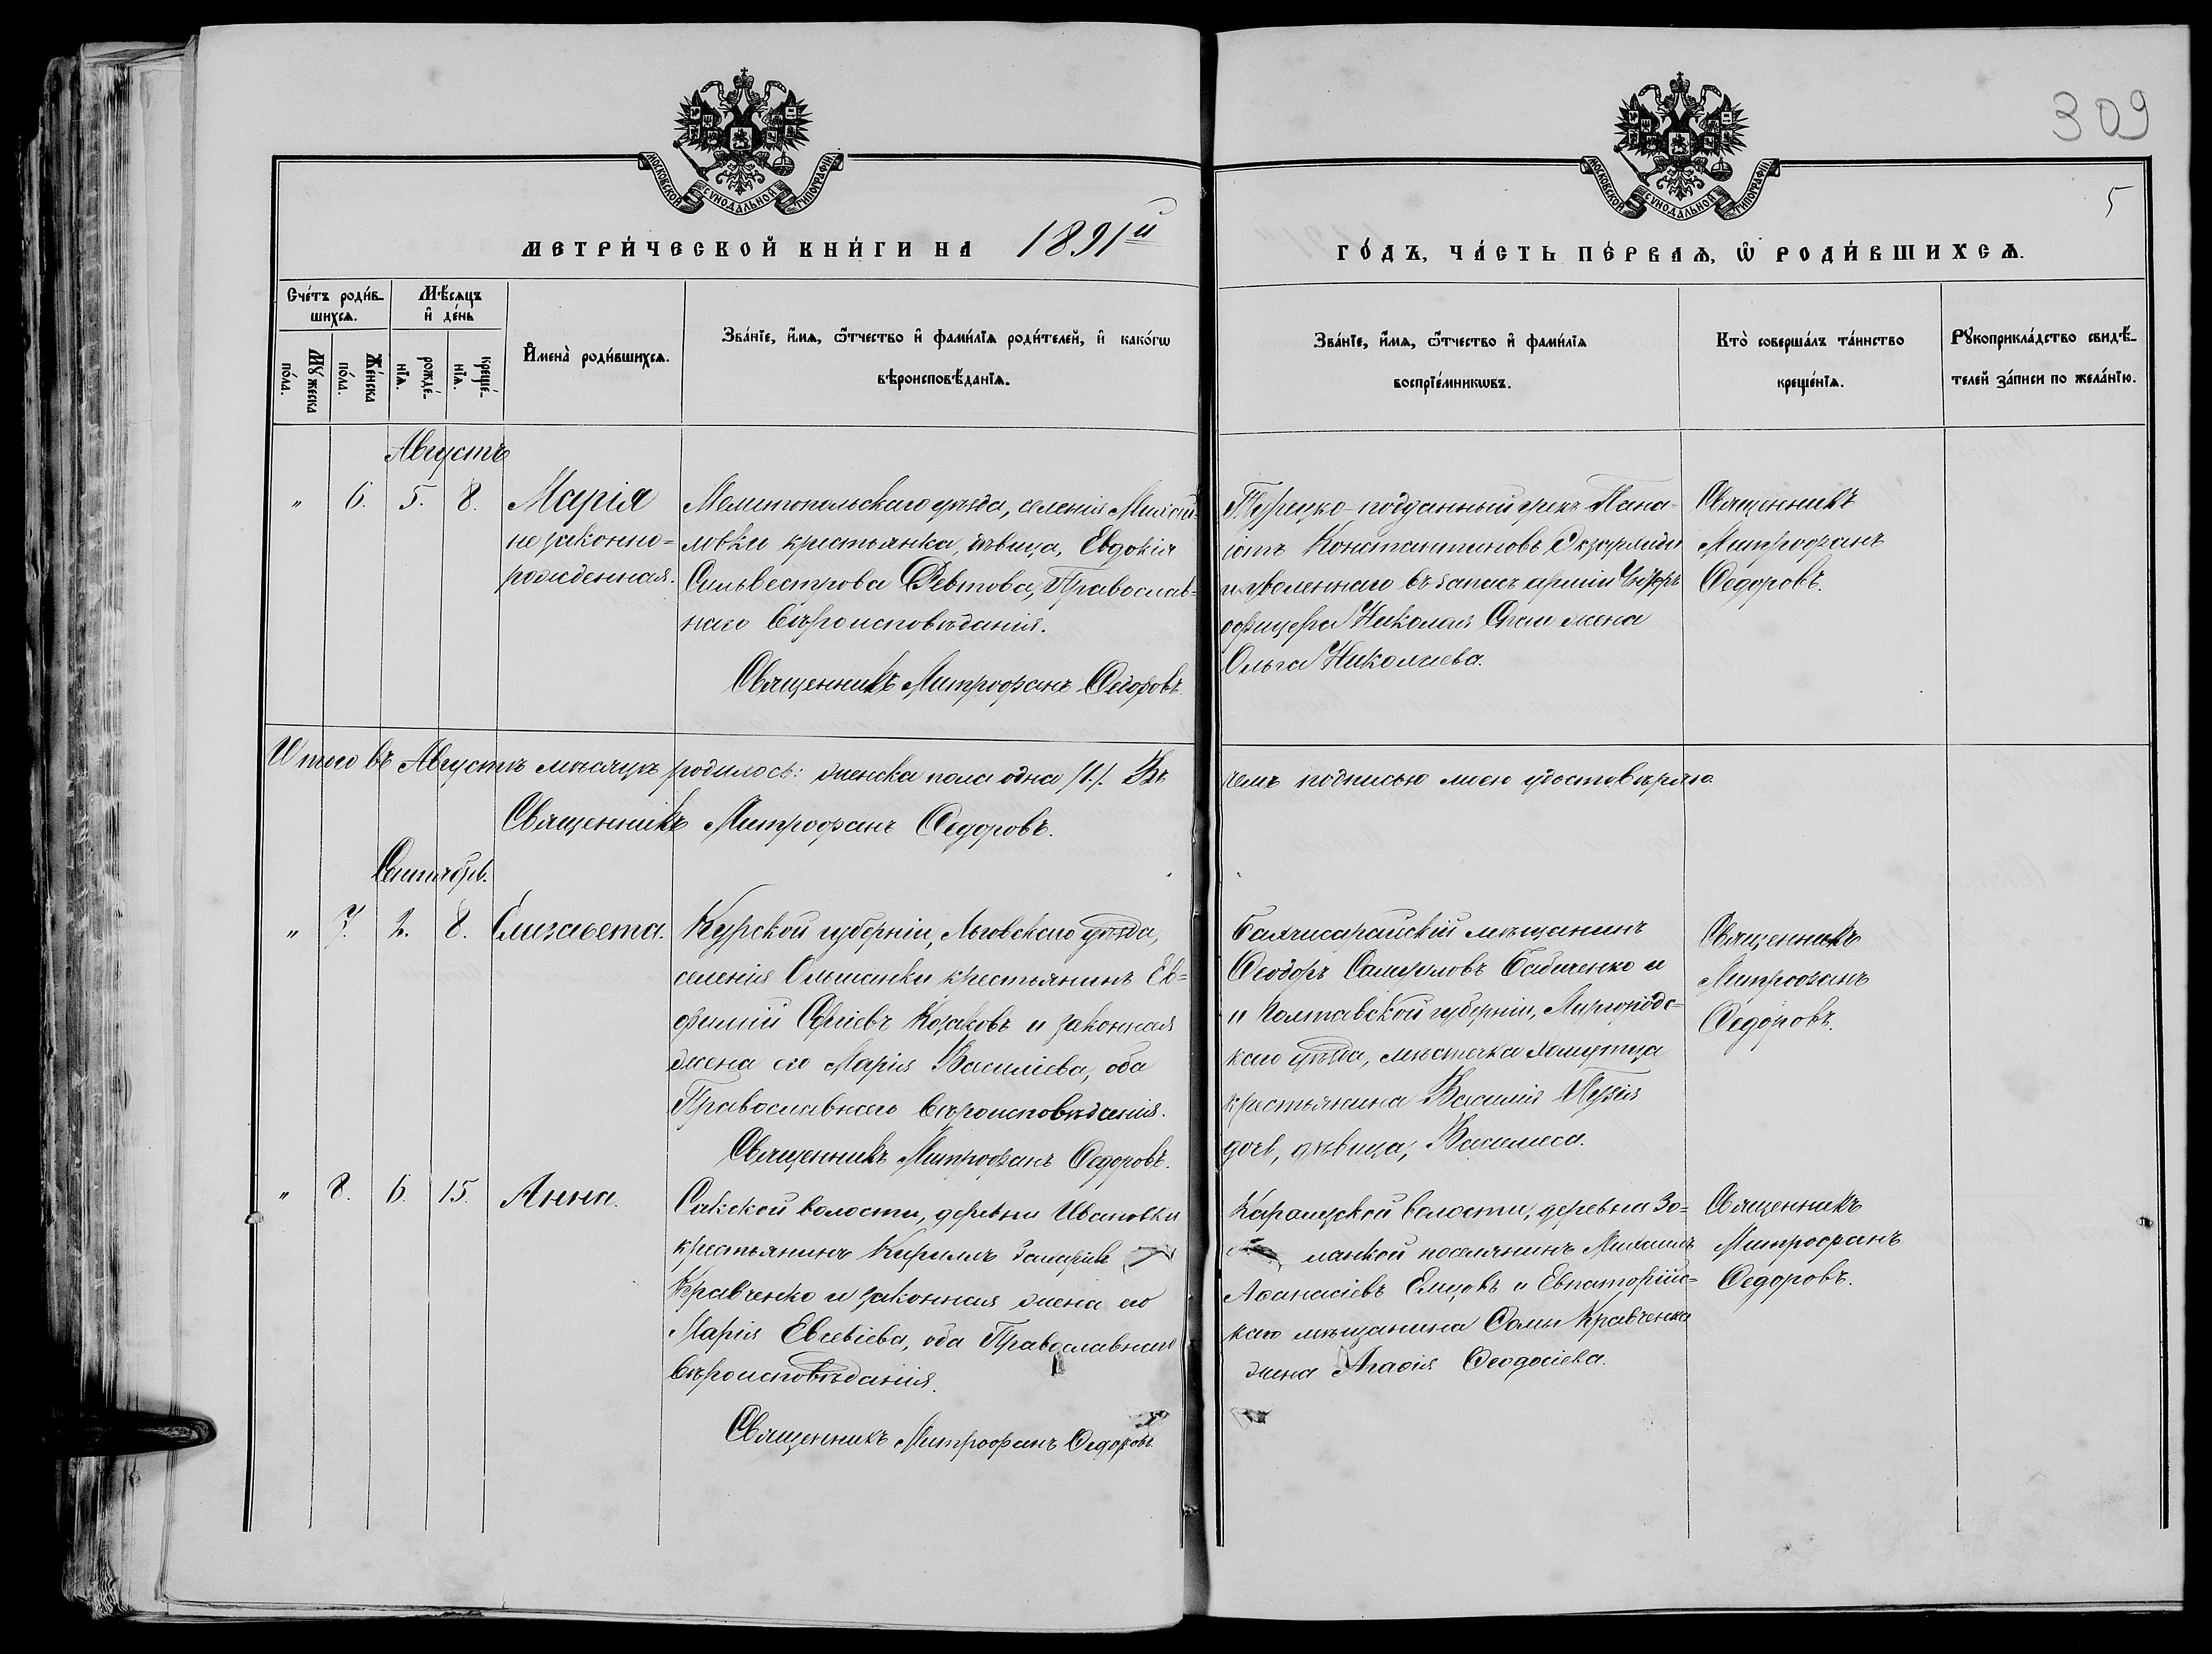 309
5
МОСКОВСКОЙ СѴНОДАЛЬНОЙ ТИПОГРАФІИ
МОСКОВСКОЙ СѴНОДАЛЬНОЙ ТИПОГРАФІИ
МЕТРИ́ЧЕСКОЙ КНИ́ГИ НА 1891й
ГО́ДЪ, ЧА́СТЬ ПЕ́РВАѦ, Ѿ РОДИ́ВШИХСѦ.
Сче́тъ роди́в-
шихсѧ.
Мѣ́сѧцъ
и҆ де́нь
Мꙋ́жеска
по́ла.
Же́нска
по́ла.
рожде́-
нїѧ.
креще́-
нїѧ.
И҆мена̀ роди́вшихсѧ.
Зва́нїе, и҆́мѧ, ѻ҆́тчество и҆ фами́лїѧ роди́телей, и҆ како́гѡ
вѣроисповѣ́данїѧ.
Зва́нїе, и҆́мѧ, ѻ҆́тчество и҆ фами́лїѧ
воспрїе́мникѡвъ.
Кто̀ соверша́лъ та́инство
креще́нїѧ.
Рꙋкоприкла́дство свидѣ́-
телей за́писи по жела́нїю.
Августъ
" 6. 5. 8. Марія
незаконно=
рожденная.
Мелитопольскаго уѣзда, селенія Михай=
ловки крестьянка, дѣвица, Евдокія
Сильвестрова Православ=
наго вѣроисповѣданія.
Священникъ Митрофанъ Ѳедоровъ.
Турецко-подданный грекъ Пана-
іотъ Константиновъ
и уволеннаго въ запасъ арміи Унтеръ
офицера Николая жена
Ольга Николаева.
Священникъ
Митрофанъ
Ѳедоровъ.
Итого въ Августѣ мѣсяцѣ родилось: женска пола одна /1./ Въ
чемъ подписью моею удостовѣряю
Священникъ Митрофанъ Ѳедоровъ.
Сентябрь.
" 7. 2. 8. Елизавета.
Курской губерніи, Льговскаго уѣзда,
селенія Ольшанки крестьянинъ Ев=
фимій Сергіевъ Козаковъ и законная
жена его Марія Василіева, оба
Православнаго вѣроисповѣданія.
Священникъ Митрофанъ Ѳедоровъ.
Бахчисарайскій мѣщанинъ
Ѳеодоръ Самуиловъ Бабиченко и
и Полтавской губерніи, Миргородс-
каго уѣзда, мѣстечка Хомутца
крестьянина Василія
дочь, дѣвица, Василиса.
Священникъ
Митрофанъ
Ѳедоровъ.
" 8. 6. 15. Анна.
Сакской волости, деревни Ивановки
крестьянинъ Кириллъ
Кравченко и законная жена его
Марія Евсевіева, оба Православнаго
вѣроисповѣданія.
Священникъ Митрофанъ Ѳедоровъ
волости, деревни
поселянинъ Михаилъ
Аѳанасіевъ и Евпаторійс=
каго мѣщанина Ѳомы Кравченка
жена Агаѳія Ѳеодосіева.
Священникъ
Митрофанъ
Ѳедоровъ.